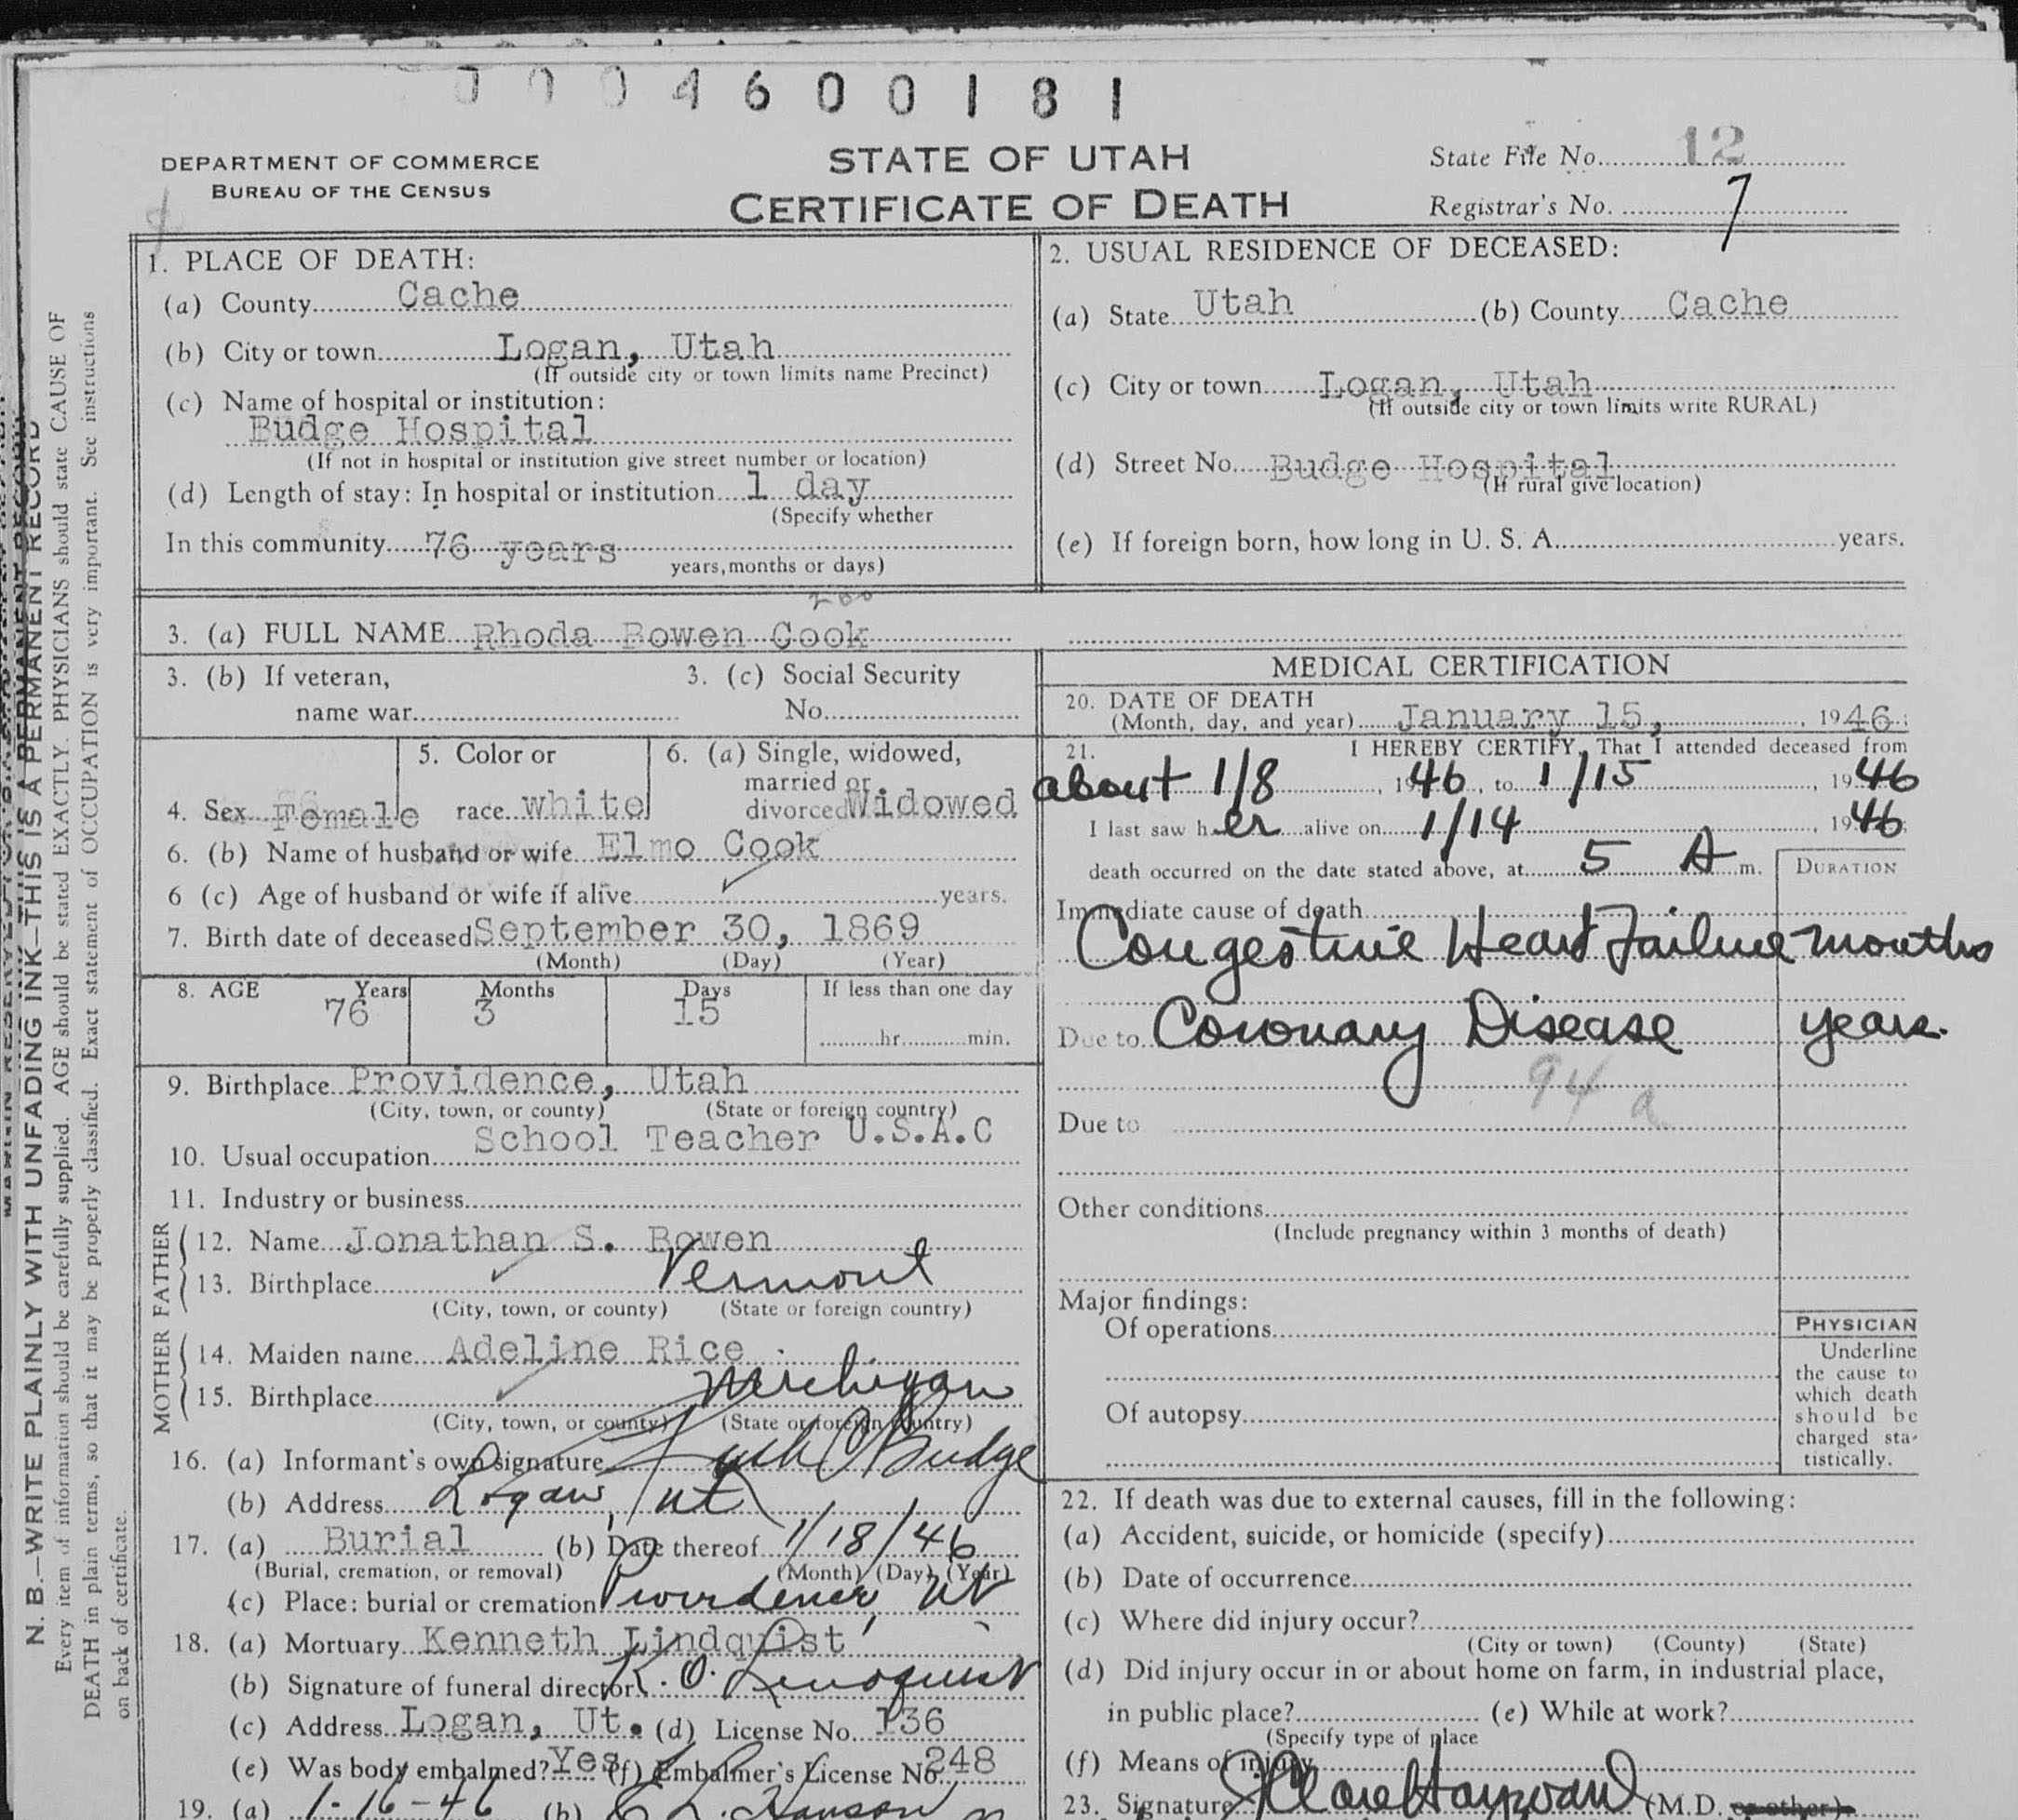 0004600181
DEPARTMENT OF COMMERCE
BUREAU OF THE CENSUS
STATE OF UTAH
CERTIFICATE OF DEATH
State File No. 12
Registrar's No. 7
1. PLACE OF DEATH:
(a) County Cache
(b) City or town Logan, Utah
(If outside city or town limits name Precinct)
(c) Name of hospital or institution:
Budge Hospital
(If not in hospital or institution give street number or location)
(d) Length of stay: In hospital or institution 1 day
(Specify whether
In this community 76 years
years, months or days)
2. USUAL RESIDENCE OF DECEASED:
(a) State Utah (b) County Cache
(c) City or town Logan, Utah
(If outside city or town limits write RURAL)
(d) Street No. Budge Hospital
(If rural give location)
(e) If foreign born, how long in U. S. A. years.
3. (a) FULL NAME Rhoda Bowen Cook
3. (b) If veteran, name war
3. (c) Social Security No.
4. Sex Female
5. Color or race white
6. (a) Single, widowed, married or divorced Widowed
6. (b) Name of husband or wife Elmo Cook
6 (c) Age of husband or wife if alive years.
7. Birth date of deceased September 30, 1869
(Month) (Day) (Year)
8. AGE Years Months Days If less than one day
76 3 15 hr. min.
9. Birthplace Providence, Utah
(City, town, or county) (State or foreign country)
10. Usual occupation School Teacher U.S.A.C
11. Industry or business
FATHER
12. Name Jonathan S. Bowen
13. Birthplace Vermont
(City, town, or county) (State or foreign country)
MOTHER
14. Maiden name Adeline Rice
15. Birthplace Michigan
(City, town, or county) (State or foreign country)
16. (a) Informant's own signature Budge
(b) Address Logan, Ut
17. (a) Burial (b) Date thereof 1/18/46
(Burial, cremation, or removal) (Month) (Day) (Year)
(c) Place: burial or cremation Providence, Ut
18. (a) Mortuary Kenneth Lindquist
(b) Signature of funeral director K. O. Lindquist
(c) Address Logan, Ut. (d) License No. 136
(e) Was body embalmed? Yes (f) Embalmer's License No. 248
19. (a) 1-16-46 (b) Hanson
MEDICAL CERTIFICATION
20. DATE OF DEATH
(Month, day, and year) January 15, 1946
21. I HEREBY CERTIFY, That I attended deceased from
about 1/8, 1946, to 1/15, 1946
I last saw her alive on 1/14, 1946
death occurred on the date stated above, at 5 A m.
DURATION
Immediate cause of death
Congestive Heart Failure months
Due to Coronary Disease years.
94 a
Due to
Other conditions
(Include pregnancy within 3 months of death)
Major findings:
Of operations
Of autopsy
PHYSICIAN
Underline
the cause to
which death
should be
charged sta-
tistically.
22. If death was due to external causes, fill in the following:
(a) Accident, suicide, or homicide (specify)
(b) Date of occurrence
(c) Where did injury occur?
(City or town) (County) (State)
(d) Did injury occur in or about home on farm, in industrial place,
in public place? (e) While at work?
(Specify type of place
(f) Means of injury
23. Signature J. Clare Hayward (M.D. or other)
N. B.—WRITE PLAINLY WITH UNFADING INK—THIS IS A PERMANENT RECORD
Every item of information should be carefully supplied. AGE should be stated EXACTLY. PHYSICIANS should state CAUSE OF
DEATH in plain terms, so that it may be properly classified. Exact statement of OCCUPATION is very important. See instructions
on back of certificate.